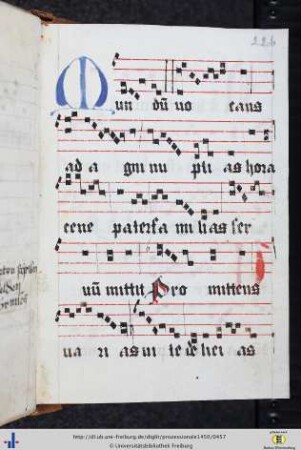 226
Mun dū vo cans
ad a gni nu pti as hora
cene pater fa mi li as ser
vū mittit Pro mittens
va ri as vi te de lici as
http://dl.ub.uni-freiburg.de/diglit/prozessionale1450/0457
© Universitätsbibliothek Freiburg